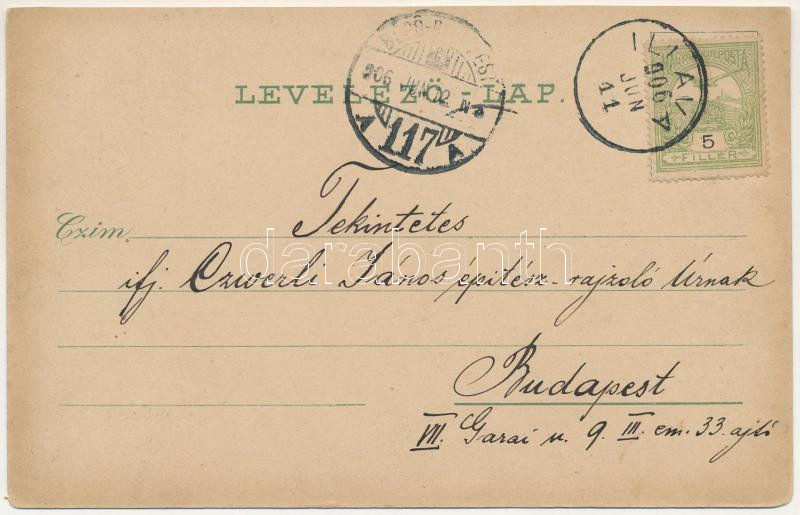 LEVELEZŐ-LAP.
117
ILLAVA
906
JUN
11
MAGYAR KIR. POSTA
5
FILLÉR
Czim
Tekintetes
ifj. Czwerli János építész-rajzoló Úrnak
darabanth
Budapest
VII. Garai u. 9. III. em. 33. ajtó